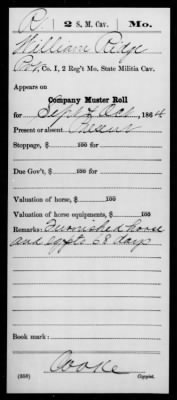 R | 2 S. M. Cav. | Mo.
William Ridge
Pvt, Co. I, 2 Reg't Mo. State Militia Cav.
Appears on
Company Muster Roll
for Sept & Oct, 1864
Present or absent Present
Stoppage, $ 100 for
Due Gov't, $ 100 for
Valuation of horse, $ 100
Valuation of horse equipments, $ 100
Remarks: Furnished horse
and eqpts 68 days
Book mark:
Cooke
(356) Copyist.